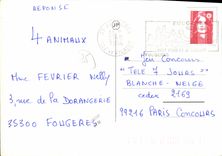 RÉPONSE
4 ANIMAUX
Mme FEVRIER Nelly
3, rue de la DORANGERIE
35300 FOUGERES
Jeu Concours
"TELE 7 JOURS"
BLANCHE-NEIGE
cedex 2169
99216 PARIS CONCOURS